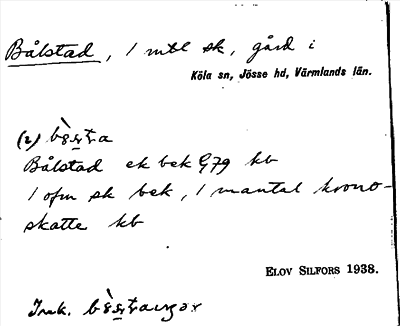 Bålstad, 1 mtl sk, gård i
Köla sn, Jösse hd, Värmlands län.
(2)
Bålstad ek bek G79 kb
1 ofm sk bek, 1 mantal krono-
skatte kb
ELOV SILFORS 1938.
Ink.